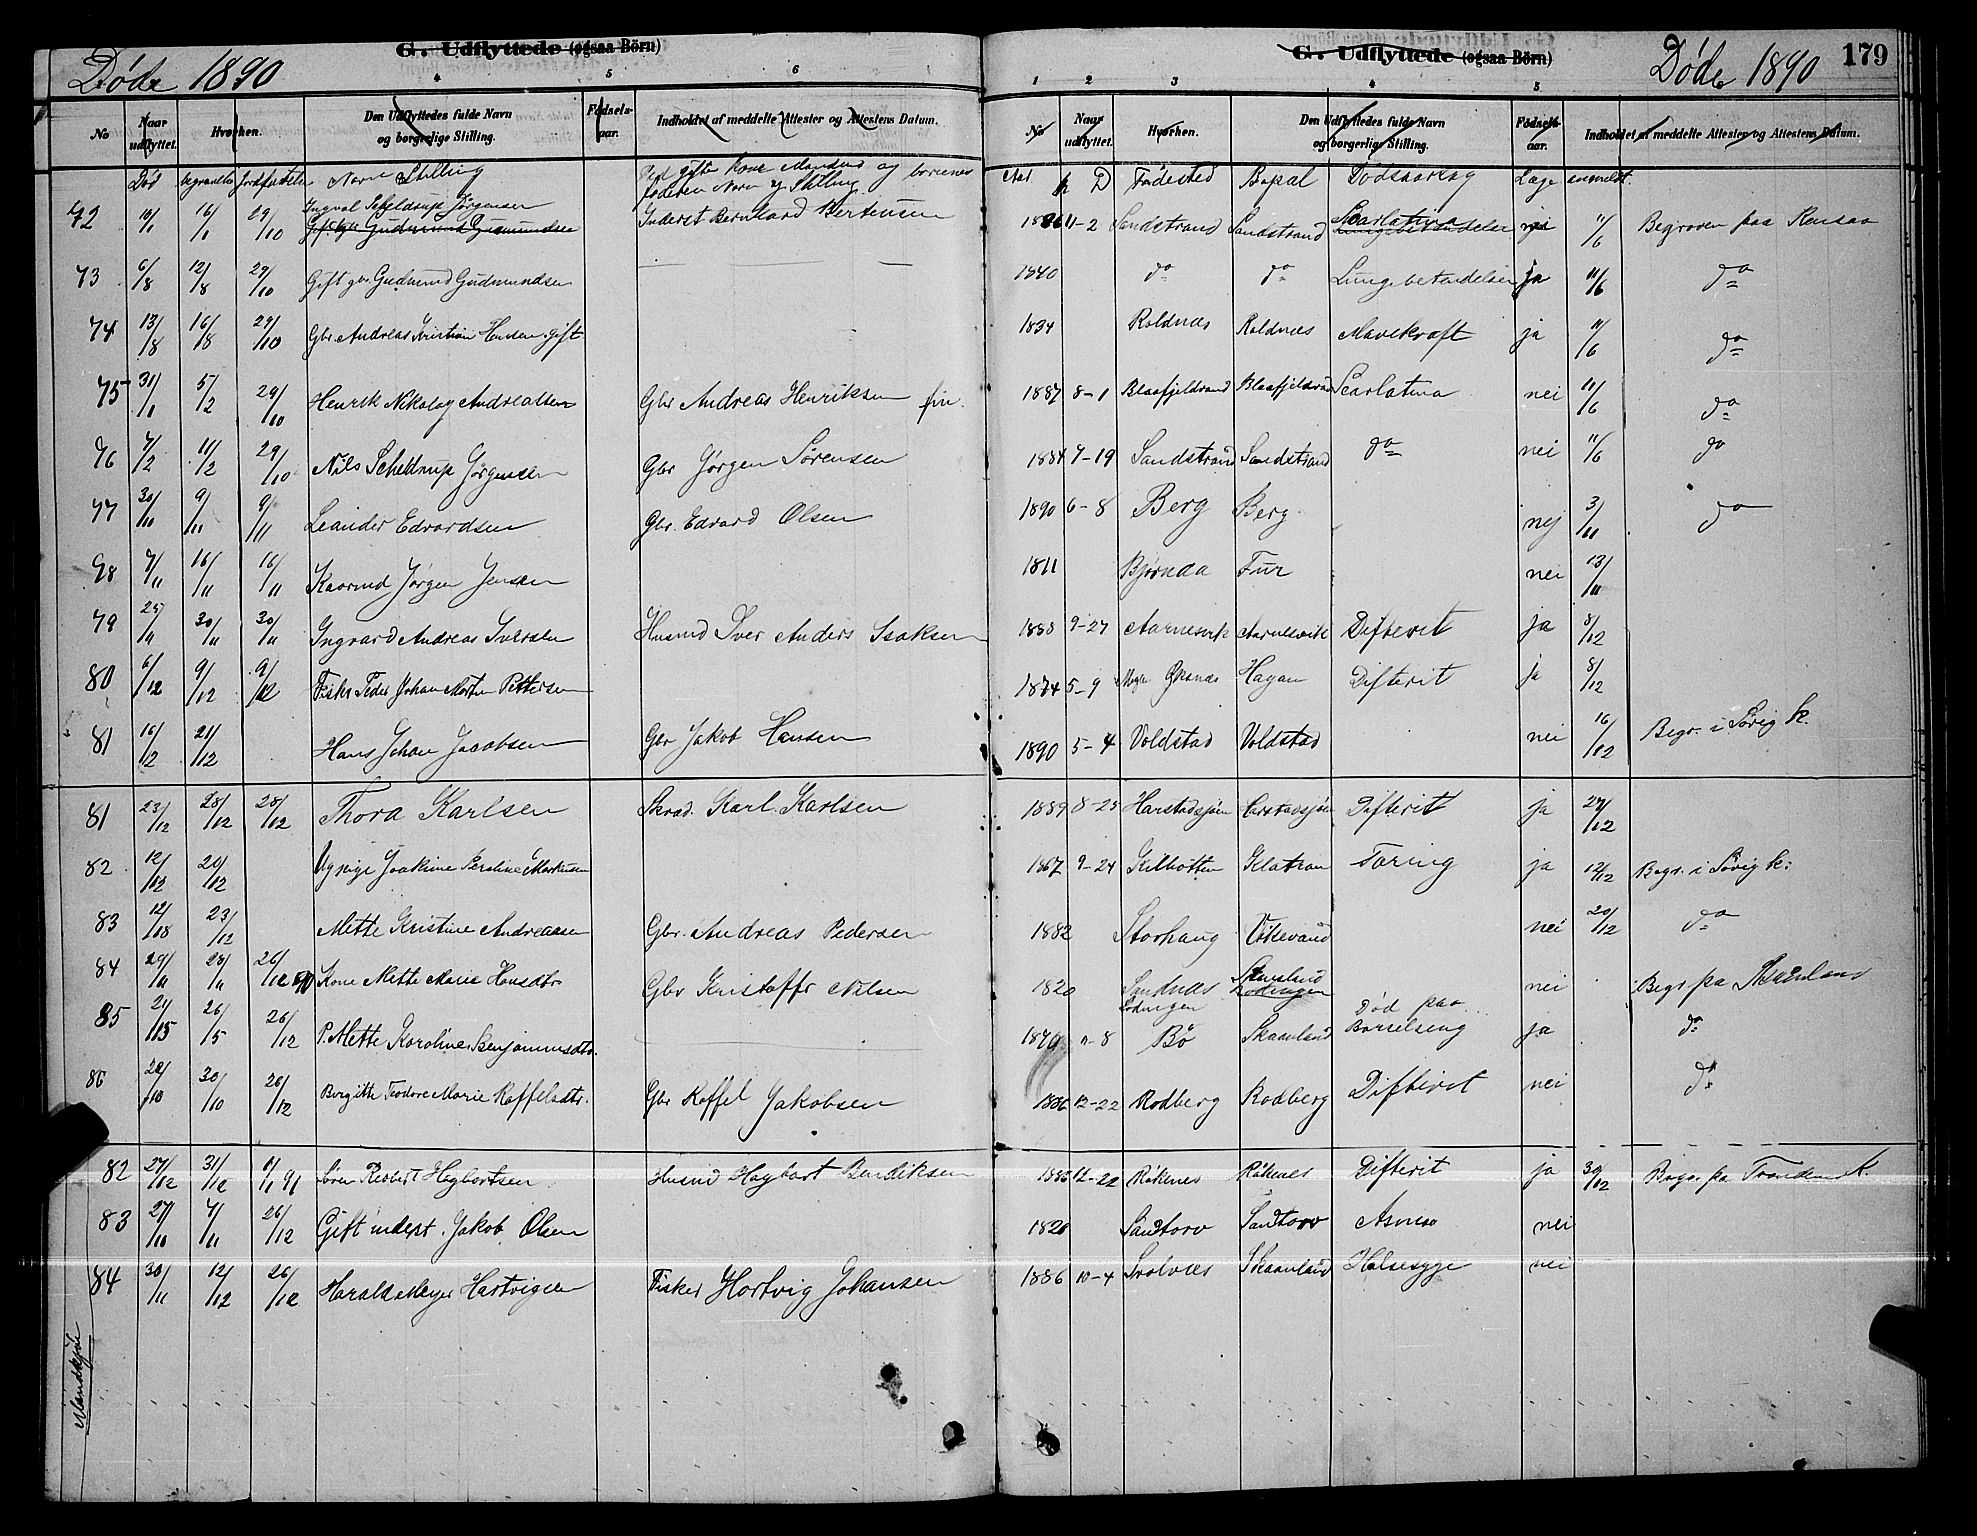 Døde 1890
G. Udflyttede (ogsaa Börn)
4 5 6
No Naar udflyttet. Hvorhen. Den Udflyttedes fulde Navn og borgerlige Stilling. Födsels-aar. Indholdet af meddelte Attester og Attestens Datum.
Død begravelse Jordfæstelse Navn Stilling
72 16/1 29/10 Ingval Scheldrup Jørgensen Inderst Bernhard Bertensen
Gudmund Gudmundsen
73 6/8 12/8 29/10 Gift gbr Gudmund Gudmundsen
74 13/8 16/8 29/10 Gbr. Andreas Kristian Hensen gift
75 31/1 5/2 29/10 Henrik Nikolay Andreassen Gbr Andreas Henriksen fin.
76 7/2 11/2 29/10 Nils Scheldrup Jørgensen Gbr Jørgen Sørensen
77 30/10 9/11 9/11 Leander Edvardsen Gbr. Edvard Olsen
78 7/11 16/11 16/11 Jørgen Jensen
79 25/11 30/11 30/11 Ingvard Andreas Iversen Husmd Iver Anders Isaksen
80 6/12 9/12 9/12 Fisker Peder Johan Morten Pettersen
81 16/12 21/12 Hans Johan Jacobsen Gbr Jakob Hansen
81 23/12 28/12 28/12 Thora Karlsen Skræd. Karl Karlsen
82 12/12 20/12 Ugpige Joakime Peroline Markusen
83 23/12 Mette Kristine Andreassen Gbr. Andreas Pedersen
84 26/12 90 Kone Mette Marie Hansdtr Gbr Kristoffr Nilsen
85 21/5 26/5 26/12 P. Mette Karoline Benjaminsdtr.
86 20/10 30/10 26/12 Birgitte Teodore Marie Roffelsdtr. Gbr Roffel Jakobsen
82 27/12 31/12 6/1 91 Sören Reobert Hagbartsen Husmd Hagbart Bendiksen
83 27/10 7/11 26/12 Gift inderst. Jakob Olsen
84 30/11 12/12 26/12 Harald Meyer Hartvigsen Fisker Hartvig Johansen
Mandskjøn
G. Udflyttede (ogsaa Börn)
Døde 1890 179
1 2 3 4 5
No Naar udflyttet. Hvorhen. Den Udflyttedes fulde Navn og borgerlige Stilling. Födsels-aar. Indholdet af meddelte Attester og Attestens Datum.
Aar D Fødested Bopal Dødsaarsag Læge anmeldt.
1886 11-2 Sandstrand Sandstrand Scarlatina nei 11/6 Begraven paa Rensaa
1840 do do Lungebetendelse ja 11/6 do
1834 Roldnæs Roldnæs Mavekræft ja 11/6 do
1887 8-1 Blaafjeldrand Blaafjeldrand Scarlatina nei 11/6 do
1884 7-19 Sandstrand Sandstrand do nei 11/6 do
1890 6-8 Berg Berg. nej 3/11 do
1811 Bjørnda Fur nei 13/11
1888 9-27 Aarnesvik Aarnesvik Difterit ja 8/12
1874 5-9 Øksnæs Hagan Difterit ja 8/12
1890 5-4 Voldstad Voldstad nei 16/12 Begr. i Sörvig k.
1889 8-25 Harstadsjøen Harstadsjøen Difterit ja 27/12
1867 9-24 Kilbotten Klatran Tæring ja 12/12 Begr. i Sörvig k:
1882 Storhaug Vikevand nei 20/12 do
1820 Sandnæs Lodingen Skaanland nei Begr. pa Skaanland
1849 11-8 Bö Skaanland Död paa Barselseng ja do
1886 12-22 Rodberg Rodberg Difterit nei do
1886 12-22 Rökenes Rökenes Difterit ja 30/12 Begr. pa Trondenes k.
1820 Sandtorv Sandtorv Asma nei
1886 10-4 Skaanland Halsesyge nei